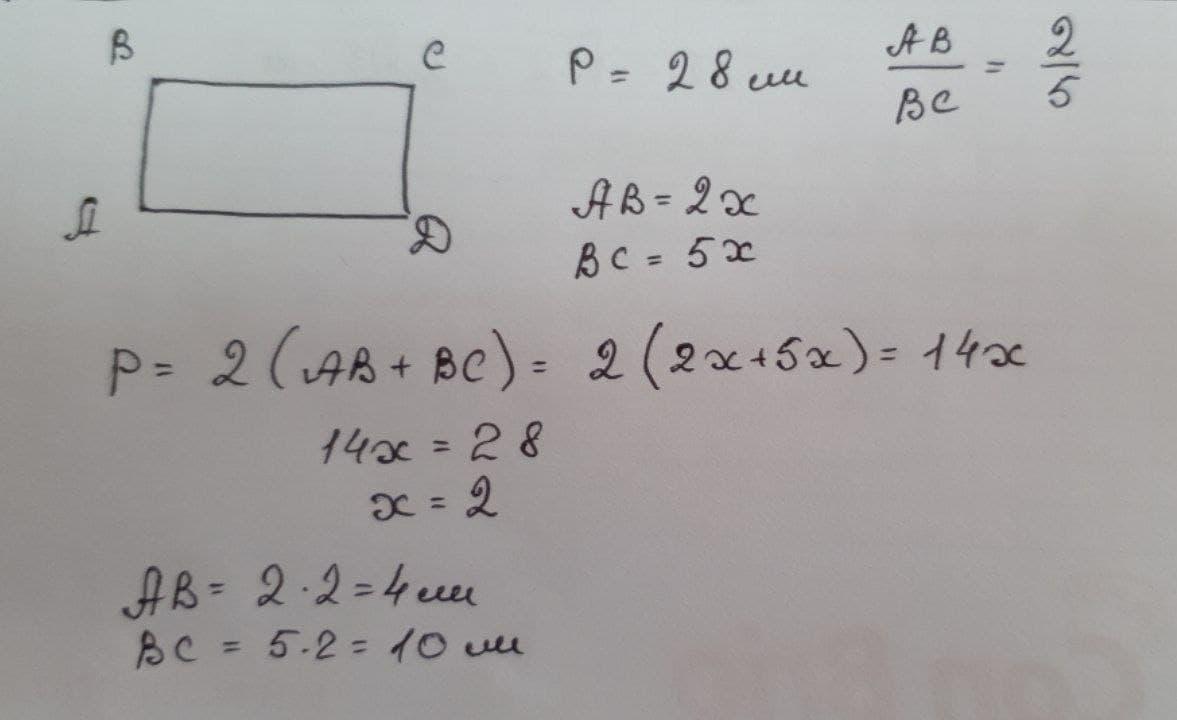 B C
P = 28 см AB/BC = 2/5
A D
AB = 2x
BC = 5x
P = 2 (AB + BC) = 2 (2x+5x) = 14x
14x = 28
x = 2
AB = 2·2 = 4 см
BC = 5·2 = 10 см